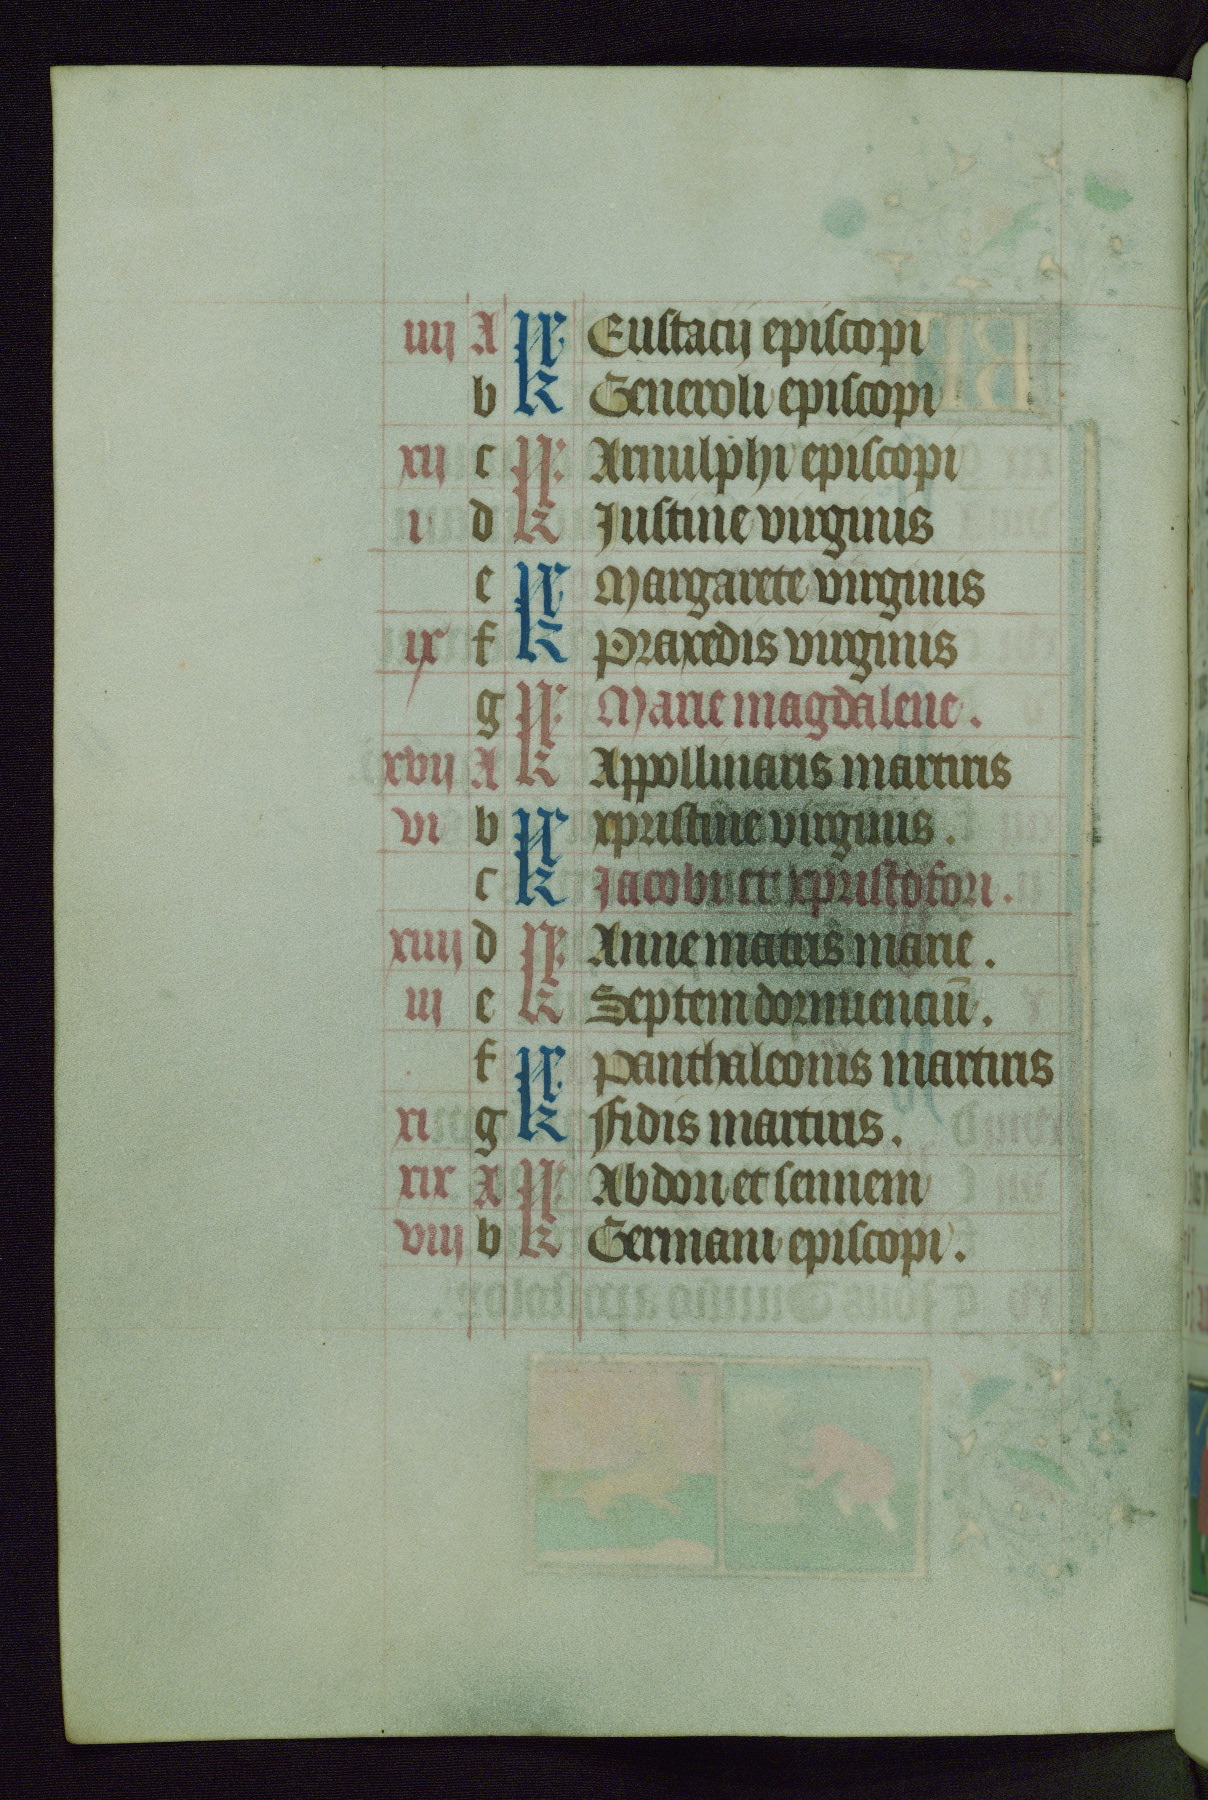 iiij A kl Eustacij episcopi
b kl Generoli episcopi
xij c kl Arnulphi episcopi
i d kl Justine virginis
e kl Margarete virginis
ix f kl Praxedis virginis
g kl Marie magdalene.
xvij A kl Appollinaris martiris
vi b kl xpristine virginis.
c kl Jacobi et xpristofori.
xiiij d kl Anne matris marie.
iij e kl Septem dormienciū.
f kl Panthaleonis martiris
xi g kl Fidis martiris.
xix A kl Abdon et sennem
viij b kl Germani episcopi.